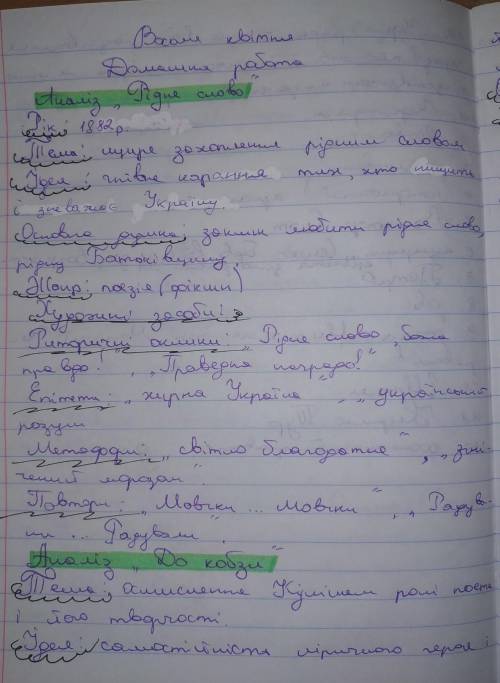 Восьме квітня
Домашня робота
Аналіз „Рідне слово"
Рік: 1882р.
Тема: щире захоплення рідним словом
Ідея: гнівне картання тих, хто нищить
і зневажає Україну.
Основна думка: заклик любити рідне слово,
рідну Батьківщину.
Жанр: поезія (
Художні засоби:
Риторичні оклики: „Рідне слово, божа
правдо!", „Праведна награда!"
Епітети: „хирна Україна", „український
розум
Метафори: „світло благодатне", „зни-
чений
Повтори: „Мовчки... мовчки", „Радува-
ли ... Радували".
Аналіз „До кобзи"
Тема: осмислення Кулішем ролі поета
і його творчості.
Ідея: самостійність ліричного героя і